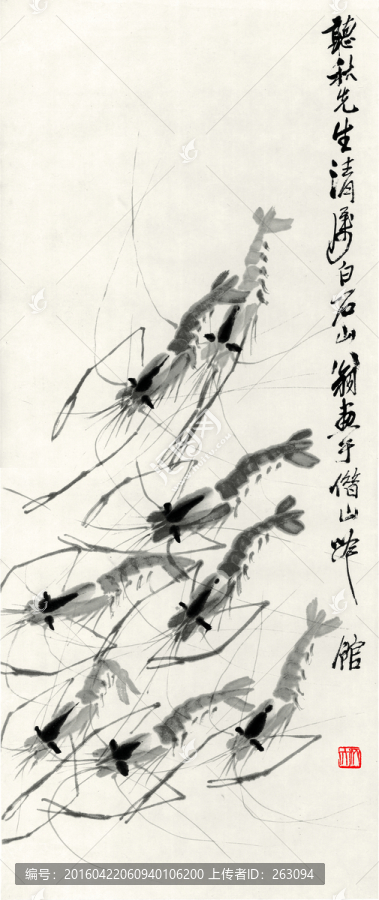 聽秋先生清屬白石山翁畫于借山吟館
编号：20160422060940106200 上传者ID：263094